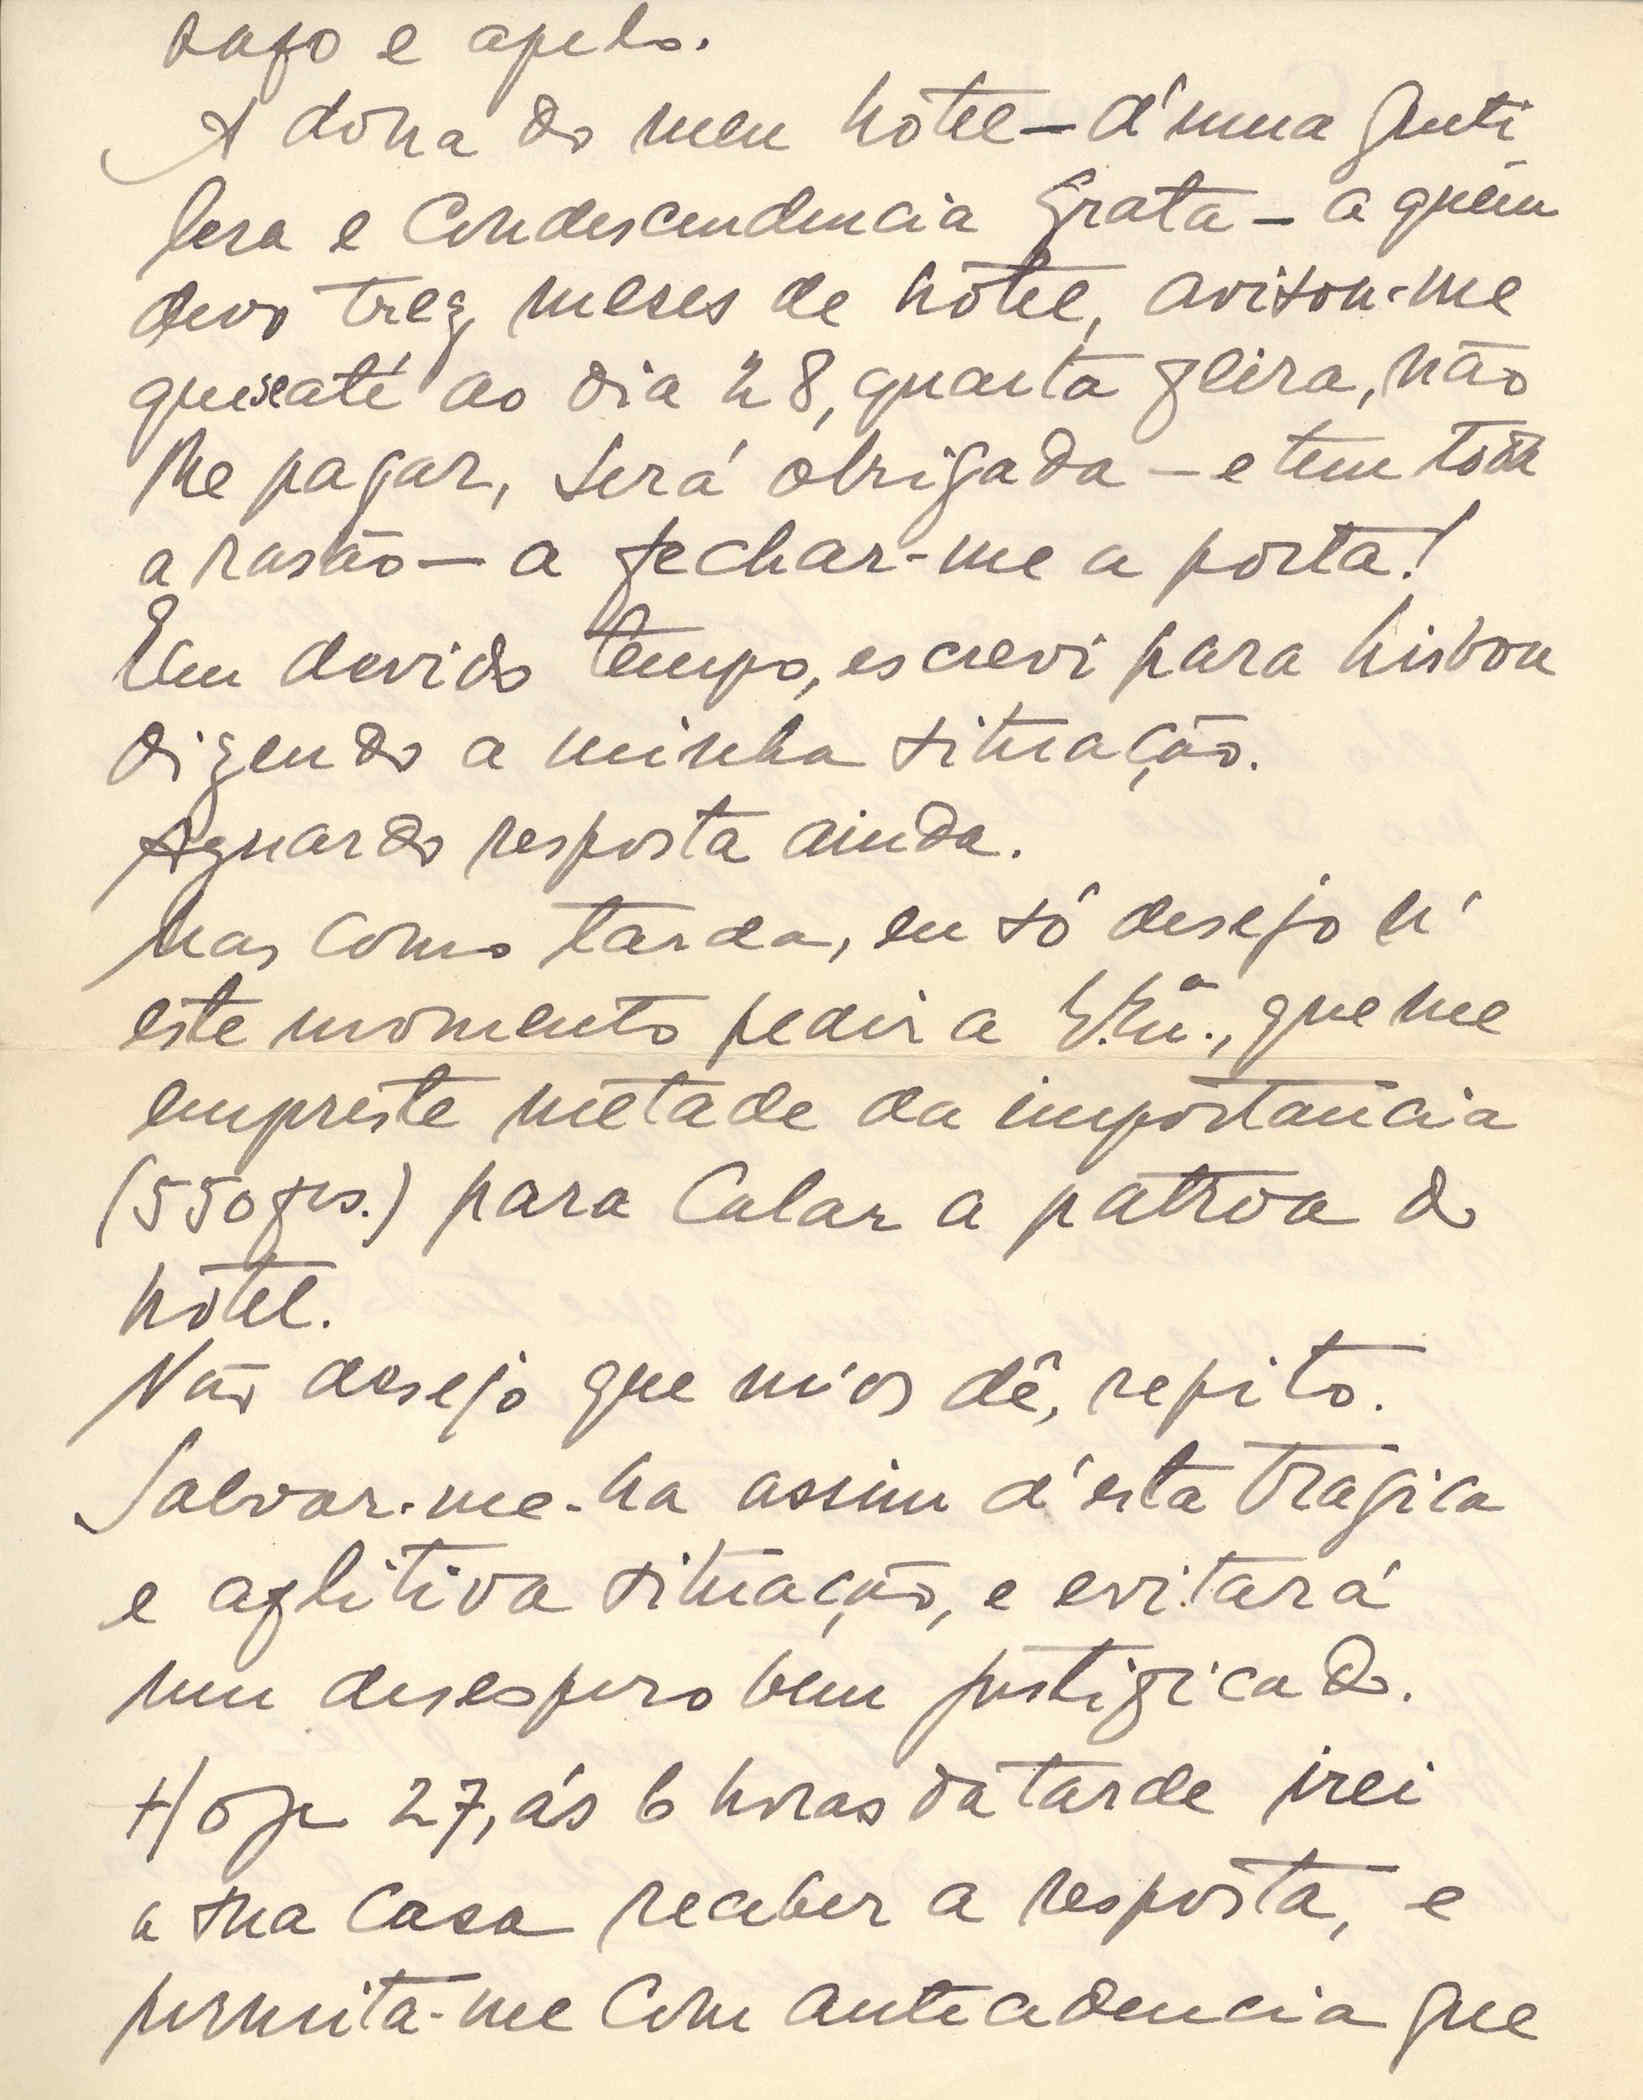 e apelo.
A dona do meu hotel — d'uma genti
lesa e condescendencia grata — a quem
devo trez meses de hotel, avisou-me
que se até ao dia 28, quarta feira, não
lhe pagar, será obrigada — e tem toda
a rasão — a fechar-me a porta!
Em devido tempo, escrevi para Lisboa
dizendo a minha situação.
Aguardo resposta ainda.
Mas como tarda, eu só desejo n'
este momento pedir a V. Ex.ª, que me
empreste metade da importancia
(550 frs.) para calar a patroa do
hotel.
Não desejo que m'os dê, repito.
Salvar-me-ha assim d'esta tragica
e aflitiva situação, e evitará
um desespero bem justificado.
Hoje 27, ás 6 horas da tarde irei
a sua casa receber a resposta, e
permita-me com antecedencia que